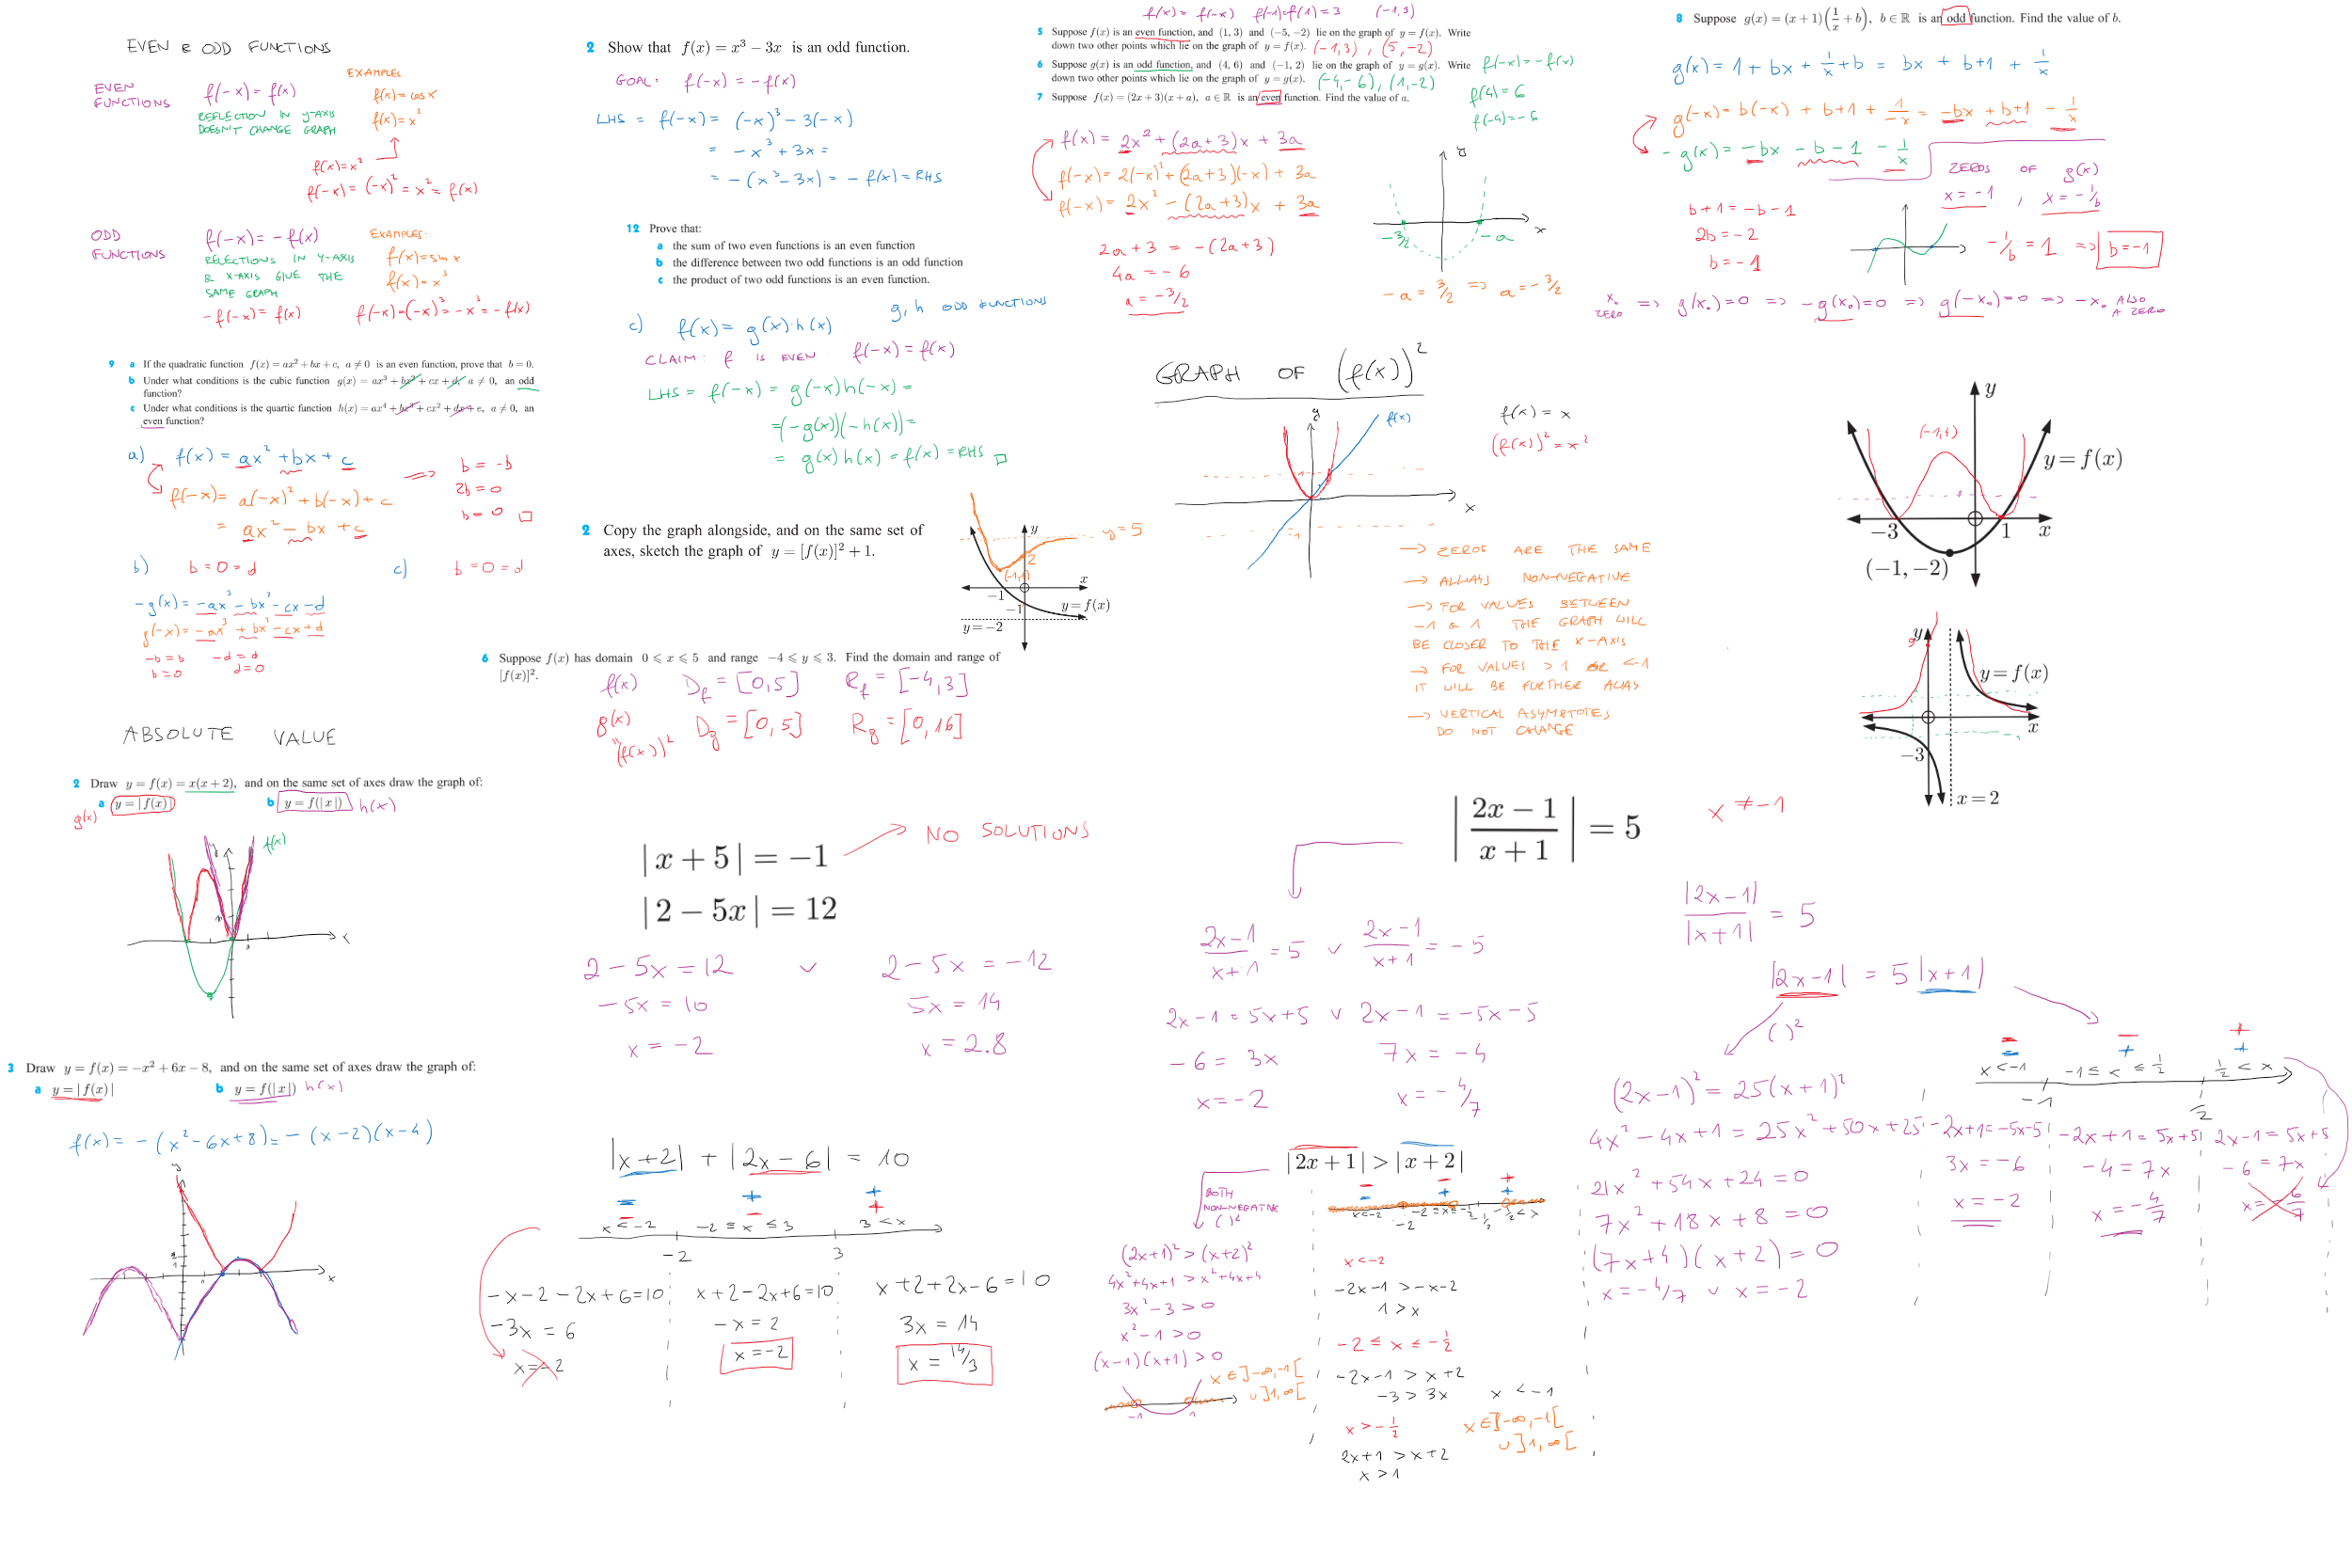 EVEN & ODD FUNCTIONS
EVEN FUNCTIONS
f(-x) = f(x)
REFLECTION IN Y-AXIS
DOESN'T CHANGE GRAPH
EXAMPLES
f(x) = cos x
f(x) = x²
f(x) = x²
f(-x) = (-x)² = x² = f(x)
ODD FUNCTIONS
f(-x) = - f(x)
RELECTIONS IN Y-AXIS
& X-AXIS GIVE THE
SAME GRAPH
- f(-x) = f(x)
EXAMPLES:
f(x) = sin x
f(x) = x³
f(-x) = (-x)³ = -x³ = - f(x)
9 a If the quadratic function f(x) = ax² + bx + c, a ≠ 0 is an even function, prove that b = 0.
b Under what conditions is the cubic function g(x) = ax³ + bx² + cx + d, a ≠ 0, an odd
function?
c Under what conditions is the quartic function h(x) = ax⁴ + bx³ + cx² + dx + e, a ≠ 0, an
even function?
a) f(x) = ax² + bx + c
f(-x) = a(-x)² + b(-x) + c
= ax² - bx + c
=> b = -b
2b = 0
b = 0 □
b) b = 0 = d
c) b = 0 = d
-g(x) = -ax³ - bx² - cx - d
g(-x) = -ax³ + bx² - cx + d
-b = b -d = d
b = 0 d = 0
ABSOLUTE VALUE
2 Draw y = f(x) = x(x + 2), and on the same set of axes draw the graph of:
a y = |f(x)| b y = f(|x|) h(x)
g(x)
f(x)
x
3 Draw y = f(x) = -x² + 6x - 8, and on the same set of axes draw the graph of:
a y = |f(x)| b y = f(|x|) h(x)
f(x) = - (x² - 6x + 8) = - (x-2)(x-4)
y
x
2 Show that f(x) = x³ - 3x is an odd function.
GOAL: f(-x) = - f(x)
LHS = f(-x) = (-x)³ - 3(-x)
= -x³ + 3x =
= - (x³ - 3x) = - f(x) = RHS
12 Prove that:
a the sum of two even functions is an even function
b the difference between two odd functions is an odd function
c the product of two odd functions is an even function.
c) f(x) = g(x)·h(x) g, h ODD FUNCTIONS
CLAIM: f IS EVEN: f(-x) = f(x)
LHS = f(-x) = g(-x)h(-x) =
= (-g(x))(-h(x)) =
= g(x)h(x) = f(x) = RHS □
2 Copy the graph alongside, and on the same set of
axes, sketch the graph of y = [f(x)]² + 1.
y
y = 5
2
(-1,1)
x
-1
-1
y = f(x)
y = -2
6 Suppose f(x) has domain 0 ⩽ x ⩽ 5 and range -4 ⩽ y ⩽ 3. Find the domain and range of
[f(x)]².
f(x) D_f = [0,5] R_f = [-4,3]
g(x) D_g = [0,5] R_g = [0,16]
"(f(x))²
|x + 5| = -1
NO SOLUTIONS
|2 - 5x| = 12
2 - 5x = 12 ∨ 2 - 5x = -12
-5x = 10 5x = 14
x = -2 x = 2.8
|x+2| + |2x - 6| = 10
x < -2 -2 ≤ x ≤ 3 3 < x
-2 3
-x-2-2x+6=10 x+2-2x+6=10 x+2+2x-6=10
-3x = 6 -x = 2 3x = 14
x = -2 x = -2 x = 14/3
f(x) = f(-x) f(-1) = f(1) = 3 (-1,3)
5 Suppose f(x) is an even function, and (1, 3) and (-5, -2) lie on the graph of y = f(x). Write
down two other points which lie on the graph of y = f(x). (-1,3), (5,-2)
6 Suppose g(x) is an odd function, and (4, 6) and (-1, 2) lie on the graph of y = g(x). Write
down two other points which lie on the graph of y = g(x). (-4,-6), (1,-2)
f(-x) = - f(x)
f(4) = 6
f(-4) = -6
7 Suppose f(x) = (2x + 3)(x + a), a ∈ ℝ is an even function. Find the value of a.
f(x) = 2x² + (2a+3)x + 3a
f(-x) = 2(-x)² + (2a+3)(-x) + 3a
f(-x) = 2x² - (2a+3)x + 3a
2a+3 = -(2a+3)
4a = -6
a = -3/2
y
x
-3/2 -a
-a = 3/2 => a = -3/2
GRAPH OF (f(x))²
y
f(x)
1
-1
x
f(x) = x
(f(x))² = x²
→ ZEROS ARE THE SAME
→ ALWAYS NON-NEGATIVE
→ FOR VALUES BETWEEN
-1 & 1 THE GRAPH WILL
BE CLOSER TO THE X-AXIS
→ FOR VALUES > 1 OR < -1
IT WILL BE FURTHER AWAY
→ VERTICAL ASYMPTOTES
DO NOT CHANGE
8 Suppose g(x) = (x + 1)(1/x + b), b ∈ ℝ is an odd function. Find the value of b.
g(x) = 1 + bx + 1/x + b = bx + b+1 + 1/x
g(-x) = b(-x) + b+1 + 1/-x = -bx + b+1 - 1/x
- g(x) = -bx - b - 1 - 1/x
b+1 = -b-1
2b = -2
b = -1
ZEROS OF g(x)
x = -1, x = -1/b
-1/b = 1 => b = -1
x₀ ZERO => g(x₀)=0 => -g(x₀)=0 => g(-x₀)=0 => -x₀ ALSO A ZERO
y
(-1,4)
y = f(x)
-3 1 x
(-1, -2)
y
9
y = f(x)
x
-3
x = 2
|(2x - 1)/(x + 1)| = 5
x ≠ -1
(2x-1)/(x+1) = 5 ∨ (2x-1)/(x+1) = -5
2x-1 = 5x+5 ∨ 2x-1 = -5x-5
-6 = 3x 7x = -4
x = -2 x = -4/7
|2x-1|/|x+1| = 5
|2x-1| = 5|x+1|
( )²
(2x-1)² = 25(x+1)²
4x² - 4x + 1 = 25x² + 50x + 25
21x² + 54x + 24 = 0
7x² + 18x + 8 = 0
(7x+4)(x+2) = 0
x = -4/7 ∨ x = -2
x < -1 -1 ≤ x ≤ 1/2 1/2 < x
-1 1/2
-2x+1=-5x-5 -2x+1=5x+5 2x-1=5x+5
3x = -6 -4 = 7x -6 = 7x
x = -2 x = -4/7 x = -6/7
|2x + 1| > |x + 2|
BOTH
NON-NEGATIVE
( )²
(2x+1)² > (x+2)²
4x²+4x+1 > x²+4x+4
3x² - 3 > 0
x² - 1 > 0
(x-1)(x+1) > 0
x ∈ ]-∞,-1[
∪ ]1,∞[
-1 1
x < -2 -2 ≤ x ≤ -1/2 -1/2 < x
-2 -1/2
x < -2
-2x-1 > -x-2
1 > x
-2 ≤ x ≤ -1/2
-2x-1 > x+2
-3 > 3x x < -1
x > -1/2
2x+1 > x+2
x > 1
x ∈ ]-∞,-1[
∪ ]1,∞[